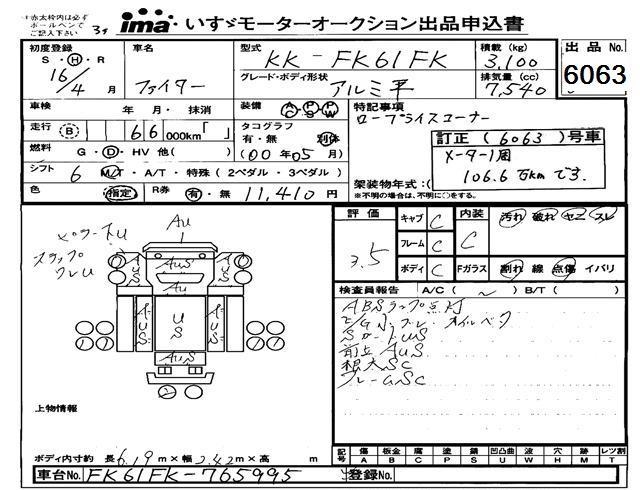 ←赤太枠内は必ず
ボールペンで
ご記入下さい
ima いすゞモーターオークション出品申込書
初度登録 車名 型式 積載 (kg) 出 品 No.
S・H・R ファイター KK-FK61FK 3,100
16/4月 グレード・ボディ形状 アルミ平 排気量 (cc) 7,540 6063
車検 年 月・抹消 装備 AC PS PW 特記事項
走行 (B) 6 6 000km「 」 タコグラフ ロープライスコーナー
有・無 別体 訂正 (6063) 号車
燃料 G・D・HV 他( ) (00年05月) メーター1周
シフト 6 M/T・A/T・特殊 (2ペダル・3ペダル) 106.6万kmです.
架装物年式:(
色 指定 R券 有・無 11,410円 ※不明の場合は、不明に○をする。
評 価 キャブ C 内装 汚れ 破れ セニ スレ
3.5 フレーム C C
ボディ C Fガラス 割れ 線 点傷 イバリ
検査員報告 A/C ( ～ ) B/T ( )
ABSランプ点灯
シートUS
前立AuS
根太SC
フレームSC
Au
AuS
AUS
US
AUS
AuS
上物情報
ボディ内寸約 長6.19m×幅2.42m×高 m
記号 傷 板金 腐 塗 錆 凹凸曲 波 穴 跡 レツ割
A B C P S U W H M T
車台No. FK61FK-765995 登録No.